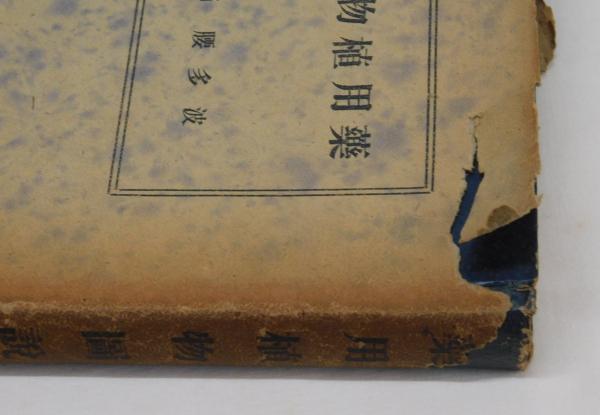 藥用植物
波多腰
藥用植物圖說